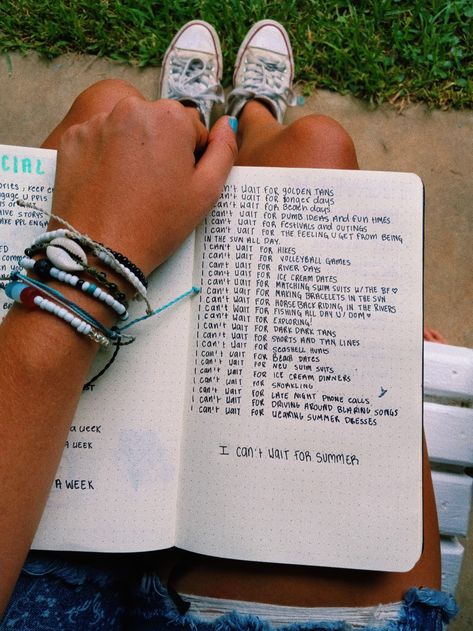 CIAL
ories , keep
ngage u ppls
have storys
ake ppl
A WEEK
A WEEK
A WEEK
can't wait for golden tans
can't wait for longer days
can't wait for Beach days
I can't wait for dumb ideas and fun times
I can't wait for festivals and outings
I can't wait for the feeling u get from being
in the sun all day.
I can't wait for hikes
I can't wait for volleyball games
I can't wait for river days
I can't wait for ice cream dates
I can't wait for matching swim suits w/ the bf ♡
I can't wait for making bracelets in the sun
I can't wait for horseback riding in the rivers
I can't wait for fishing all day w/ dom ♡
I can't wait for exploring!
I can't wait for dark dark tans
I can't wait for shorts and tan lines
I can't wait for seashell hunts
I can't wait for Beach dates
I can't wait for new swim suits
I can't wait for ice cream dinners
I can't wait for snorkling
I can't wait for late night phone calls
I can't wait for driving around blaring songs
I can't wait for wearing summer dresses
I can't wait for summer